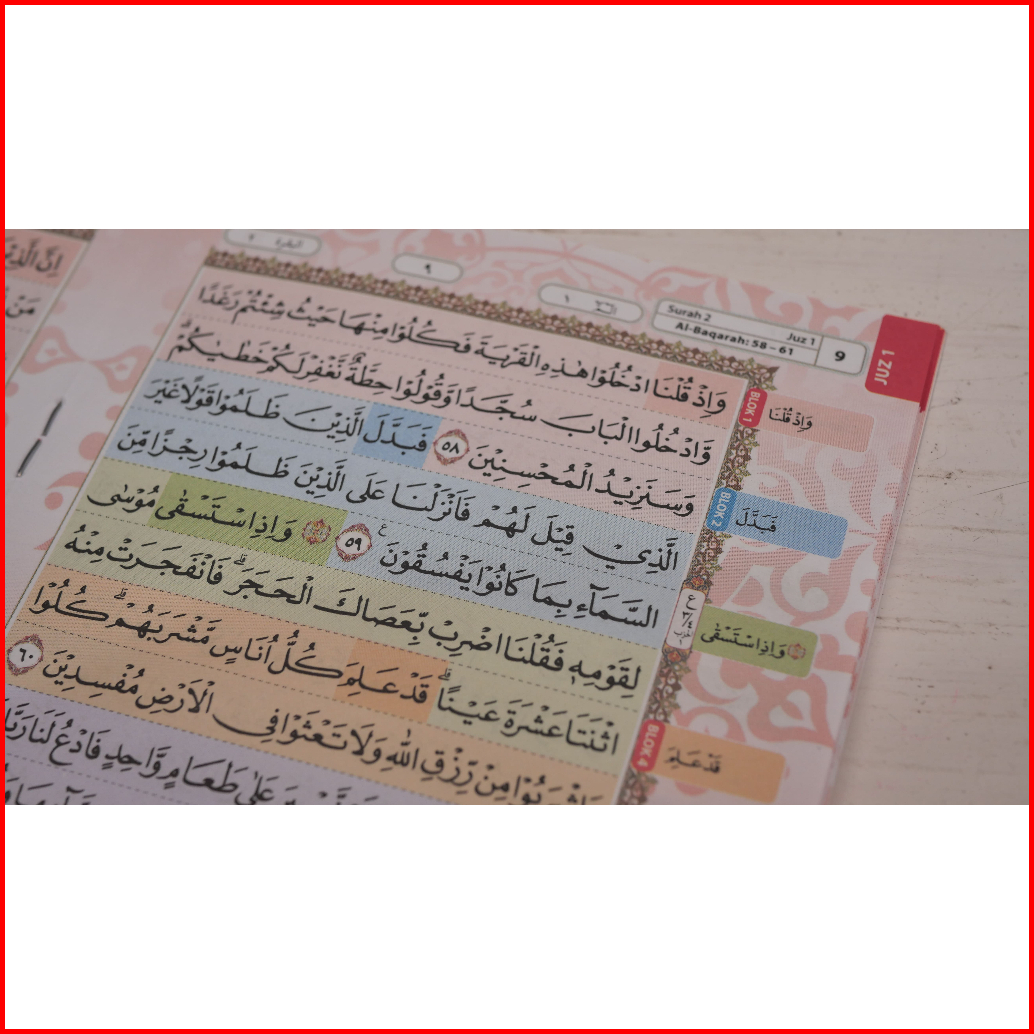 ٩
Surah 2
Juz 1
Al-Baqarah: 58 – 61
9
JUZ 1
وَاِذْ قُلْنَا ادْخُلُوْا هٰذِهِ الْقَرْيَةَ فَكُلُوْا مِنْهَا حَيْثُ شِئْتُمْ رَغَدًا
وَّادْخُلُوا الْبَابَ سُجَّدًا وَّقُوْلُوْا حِطَّةٌ نَّغْفِرْ لَكُمْ خَطٰيٰكُمْۗ
وَسَنَزِيْدُ الْمُحْسِنِيْنَ ٥٨ فَبَدَّلَ الَّذِيْنَ ظَلَمُوْا قَوْلًا غَيْرَ
الَّذِيْ قِيْلَ لَهُمْ فَاَنْزَلْنَا عَلَى الَّذِيْنَ ظَلَمُوْا رِجْزًا مِّنَ
السَّمَاۤءِ بِمَا كَانُوْا يَفْسُقُوْنَ ࣖ ٥٩ ۞ وَاِذِ اسْتَسْقٰى مُوْسٰى
لِقَوْمِهٖ فَقُلْنَا اضْرِبْ بِّعَصَاكَ الْحَجَرَۗ فَانْفَجَرَتْ مِنْهُ
اثْنَتَا عَشْرَةَ عَيْنًاۗ قَدْ عَلِمَ كُلُّ اُنَاسٍ مَّشْرَبَهُمْۗ كُلُوْا
مِنْ رِّزْقِ اللّٰهِ وَلَا تَعْثَوْا فِى الْاَرْضِ مُفْسِدِيْنَ ٦٠
عَلٰى طَعَامٍ وَّاحِدٍ فَادْعُ لَنَا
BLOK 1
وَاِذْ قُلْنَا
BLOK 2
فَبَدَّلَ
ع
٣/٤
۞ وَاِذِ اسْتَسْقٰى
BLOK 4
قَدْ عَلِمَ